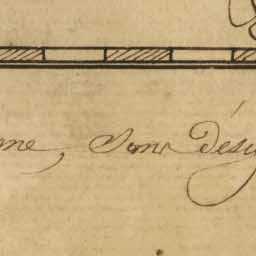 me, Sont Désig